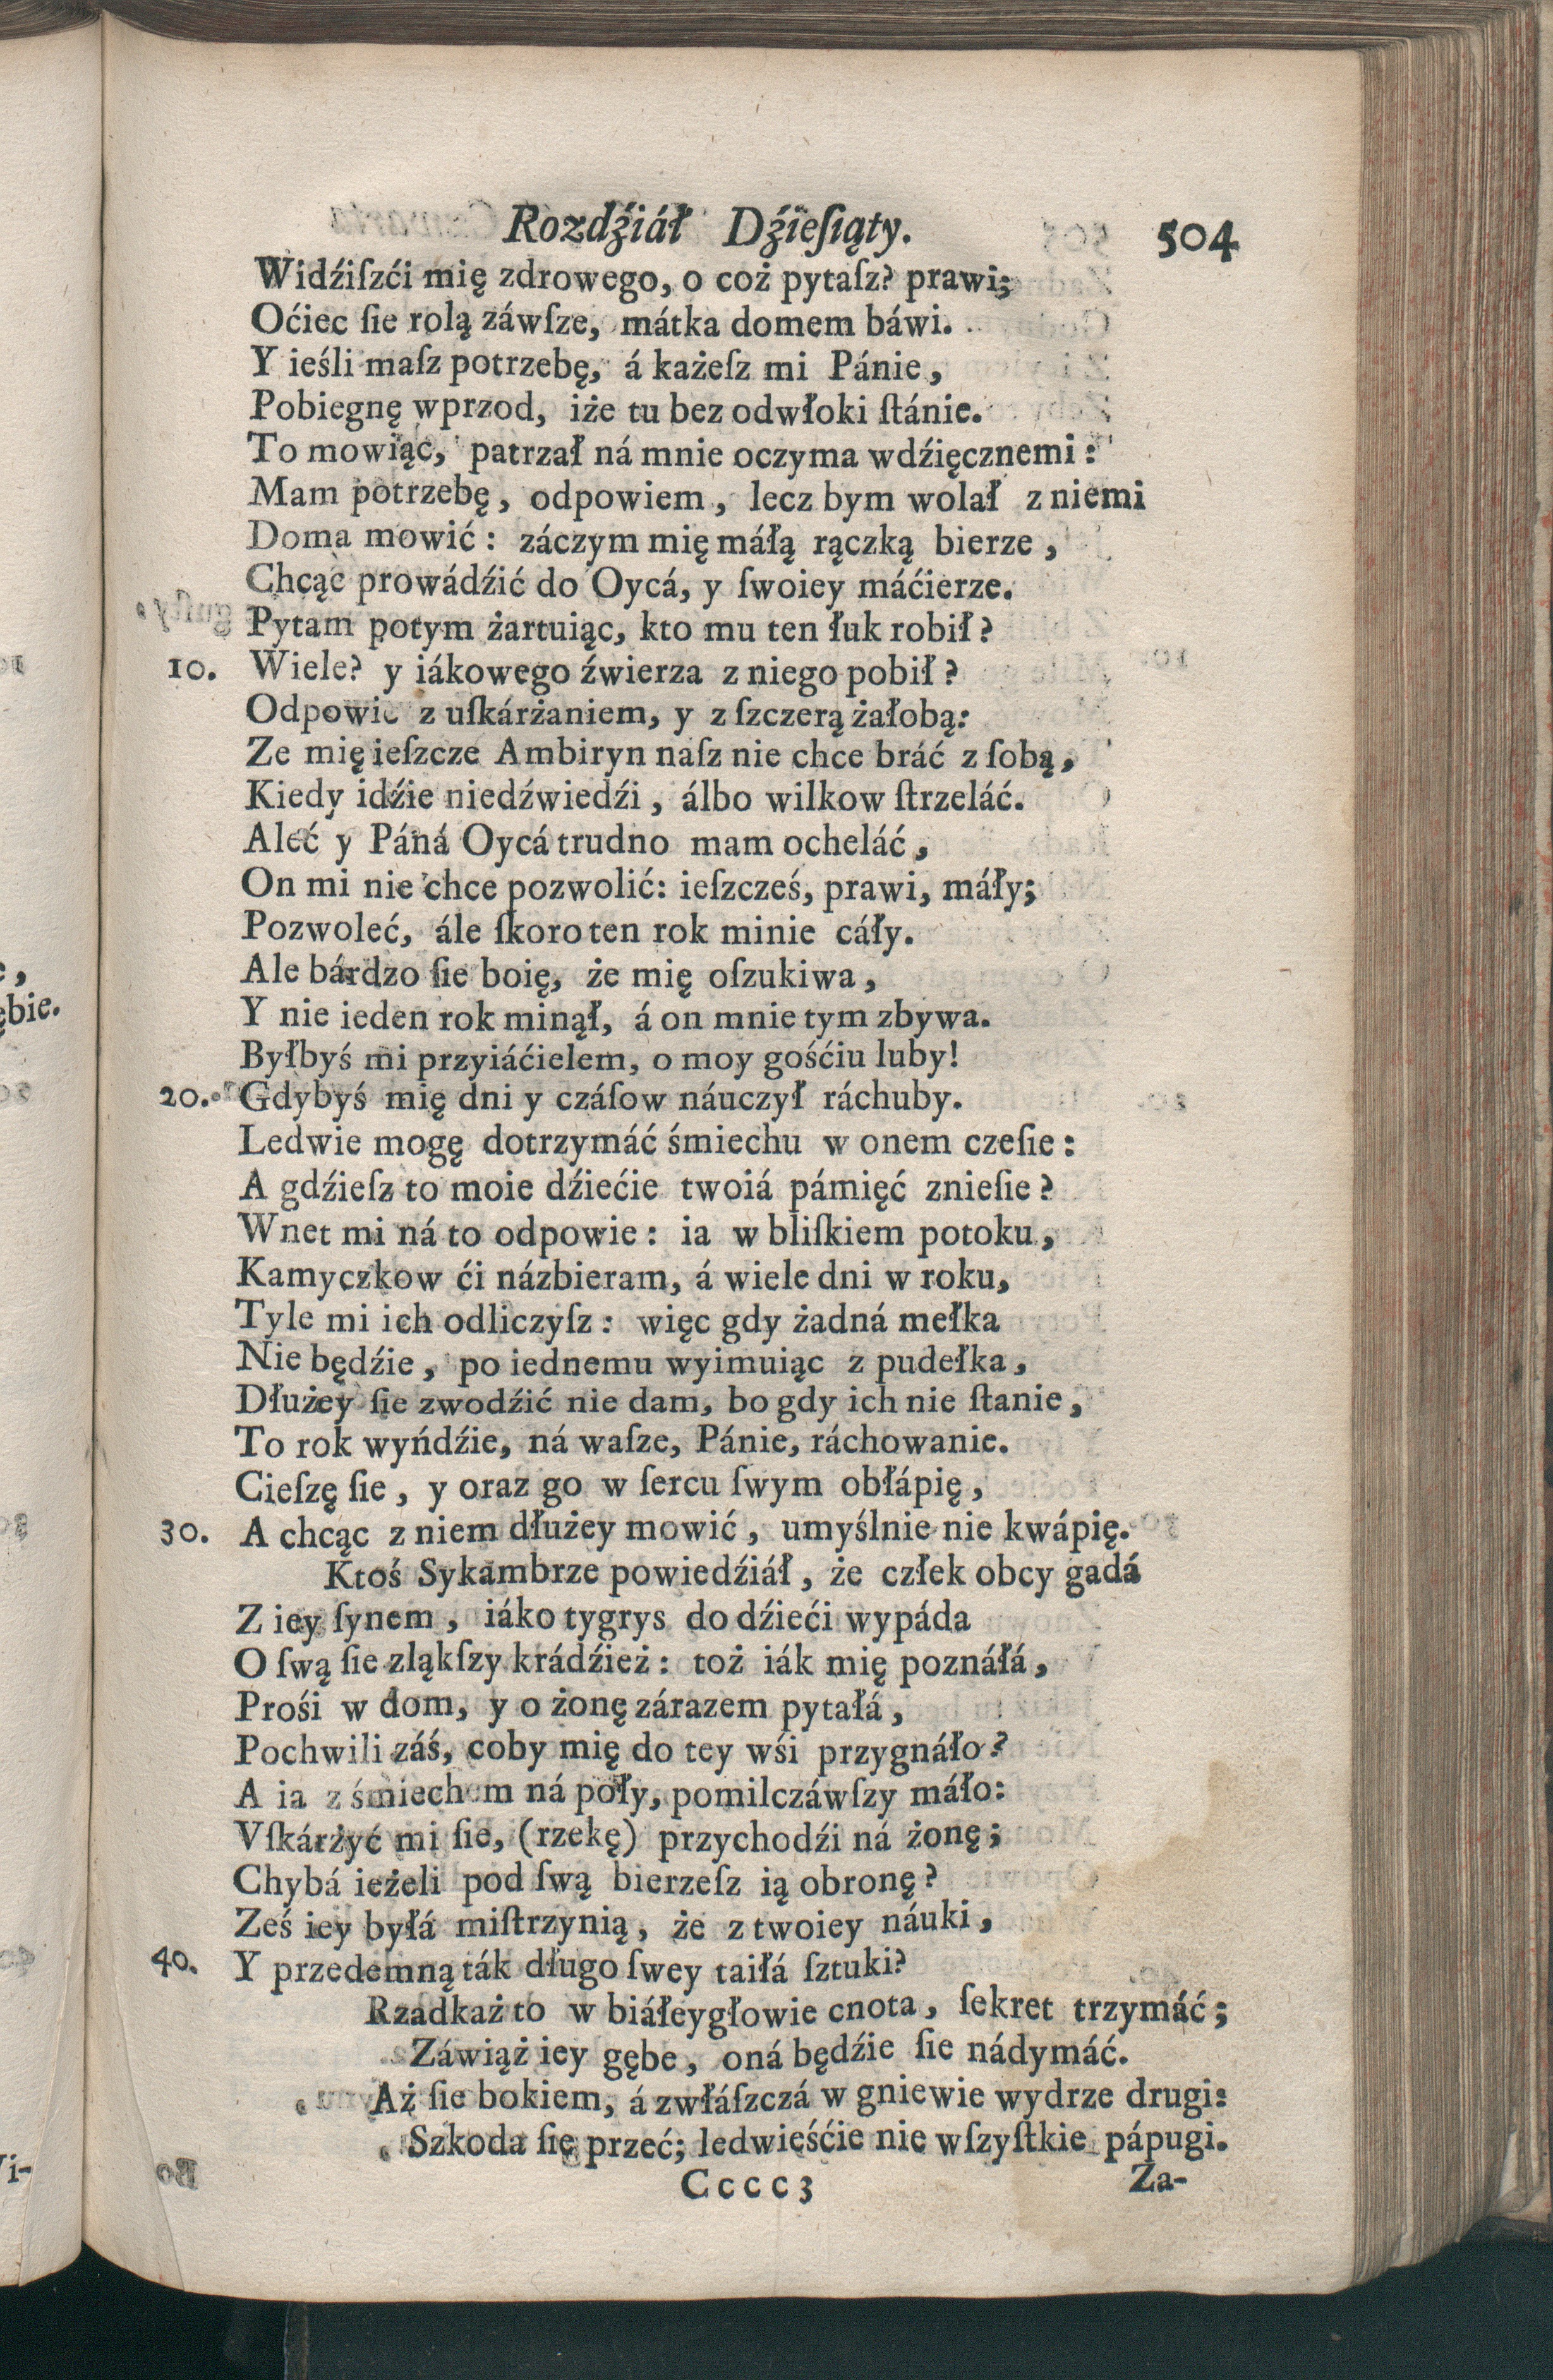 Rozdźiáł Dźieſiąty. 504
Widźiſzći mię zdrowego, o coż pytaſz? prawi;
Oćiec ſie rolą záwſze, mátka domem báwi.
Y ieśli maſz potrzebę, á każeſz mi Pánie,
Pobiegnę wprzod, iże tu bez odwłoki ſtánie.
To mowiąc, patrzał ná mnie oczyma wdźięcznemi:
Mam potrzebę, odpowiem, lecz bym wolał z niemi
Doma mowić: záczym mię máłą rączką bierze,
Chcąc prowádźić do Oycá, y ſwoiey máćierze.
Pytam potym żartuiąc, kto mu ten łuk robił?
10. Wiele? y iákowego źwierza z niego pobił?
Odpowie z uſkárżaniem, y z ſzczerą żałobą:
Ze mię ieſzcze Ambiryn naſz nie chce bráć z ſobą,
Kiedy idźie niedźwiedźi, álbo wilkow ſtrzeláć.
Aleć y Páná Oycá trudno mam ocheláć,
On mi nie chce pozwolić: ieſzcześ, prawi, máły;
Pozwoleć, ále ſkoro ten rok minie cáły.
Ale bárdzo ſie boię, że mię oſzukiwa,
Y nie ieden rok minął, á on mnie tym zbywa.
Byłbyś mi przyiáćielem, o moy gośćiu luby!
20. Gdybyś mię dni y czáſow náuczył ráchuby.
Ledwie mogę dotrzymáć śmiechu w onem czeſie:
A gdźieſz to moie dźiećie twoiá pámięć znieſie?
Wnet mi ná to odpowie: ia w bliſkiem potoku,
Kamyczkow ći názbieram, á wiele dni w roku,
Tyle mi ich odliczyſz: więc gdy żadná mełka
Nie będźie, po iednemu wyimuiąc z pudełka,
Dłużey ſie zwodźić nie dam, bo gdy ich nie ſtanie,
To rok wyńdźie, ná waſze, Pánie, ráchowanie.
Cieſzę ſie, y oraz go w ſercu ſwym obłápię,
30. A chcąc z niem dłużey mowić, umyślnie nie kwápię.
Ktoś Sykambrze powiedźiáł, że człek obcy gadá
Z iey ſynem, iáko tygrys do dźieći wypáda
O ſwą ſie zląkſzy krádźież: toż iák mię poznáłá,
Prośi w dom, y o żonę zárazem pytałá,
Pochwili záś, coby mię do tey wśi przygnáło?
A ia z śmiechem ná poły, pomilczáwſzy máło:
Vſkárżyć mi ſie, (rzekę) przychodźi ná żonę;
Chybá ieżeli pod ſwą bierzeſz ią obronę?
Ześ iey byłá miſtrzynią, że z twoiey náuki,
40. Y przedemną ták długo ſwey taiłá ſztuki?
Rzadkaż to w biáłeygłowie cnota, ſekret trzymáć;
Záwiąż iey gębe, oná będźie ſie nádymáć.
Aż ſie bokiem, á zwłáſzczá w gniewie wydrze drugi:
Szkoda ſię przeć; ledwieśćie nie wſzyſtkie pápugi.
Cccc3 Za-